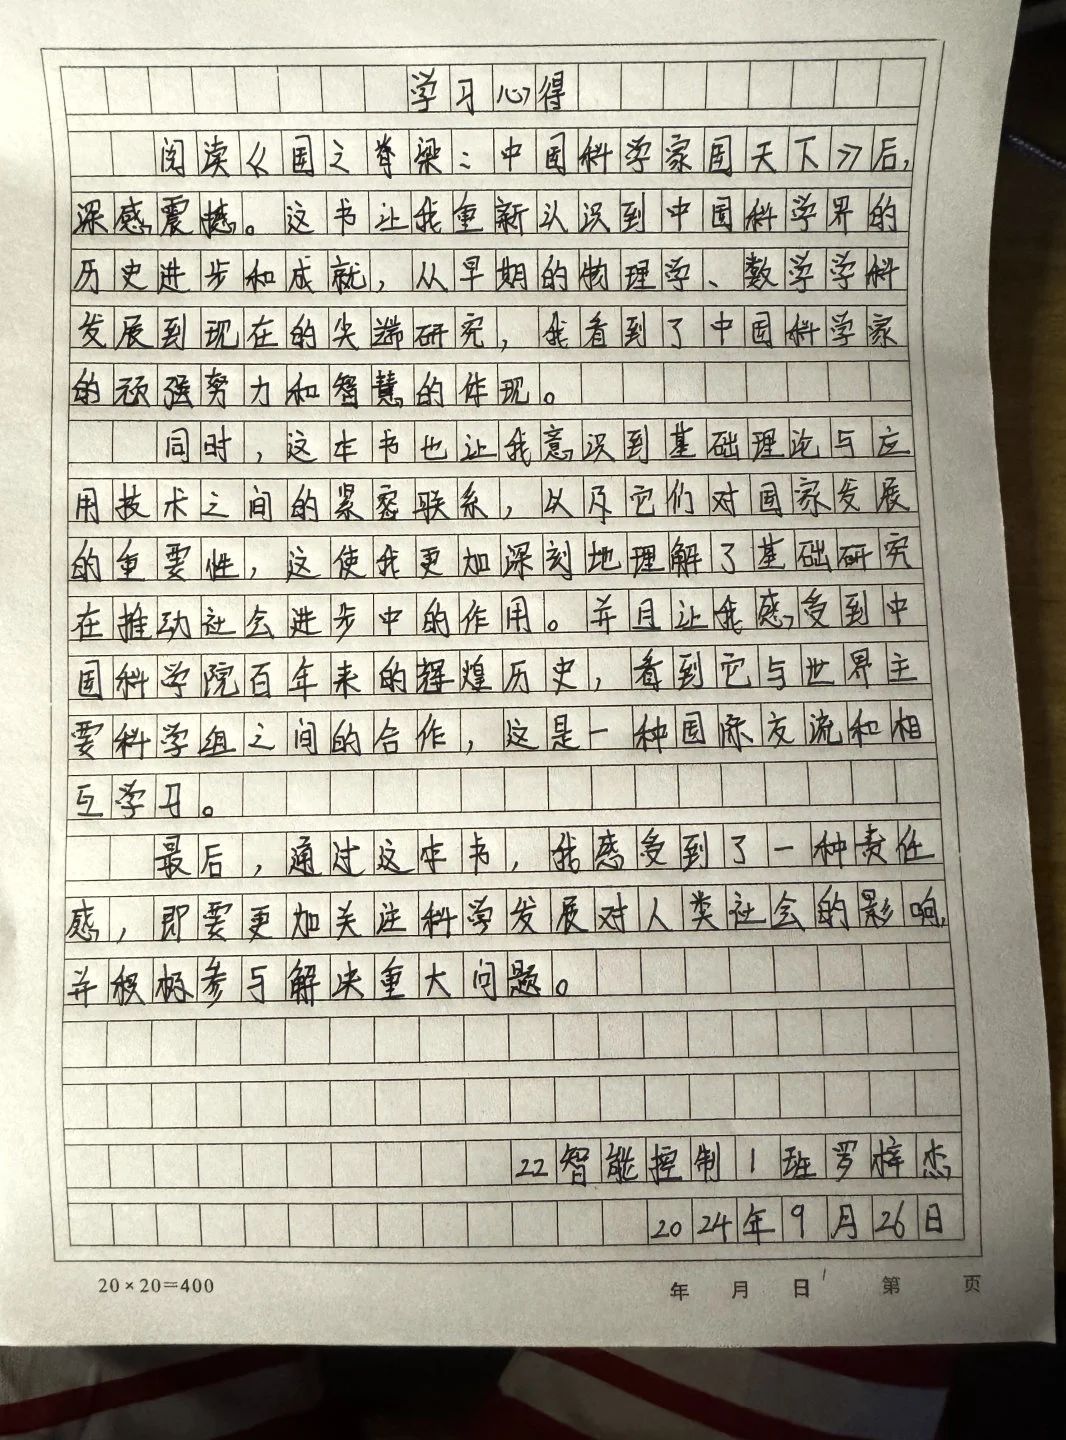 学习心得
阅读《国之脊梁:中国科学家国天下》后,
深感震撼。这书让我重新认识到中国科学界的
历史进步和成就,从早期的物理学、数学学科
发展到现在的尖端研究,我看到了中国科学家
的顽强努力和智慧的体现。
同时,这本书也让我意识到基础理论与应
用技术之间的紧密联系,以及它们对国家发展
的重要性,这使我更加深刻地理解了基础研究
在推动社会进步中的作用。并且让我感受到中
国科学院百年来的辉煌历史,看到它与世界主
要科学组之间的合作,这是一种国际交流和相
互学习。
最后,通过这本书,我感受到了一种责任
感,即要更加关注科学发展对人类社会的影响,
并积极参与解决重大问题。
22智能控制1班罗梓杰
2024年9月26日
20×20=400 年 月 日 第 页